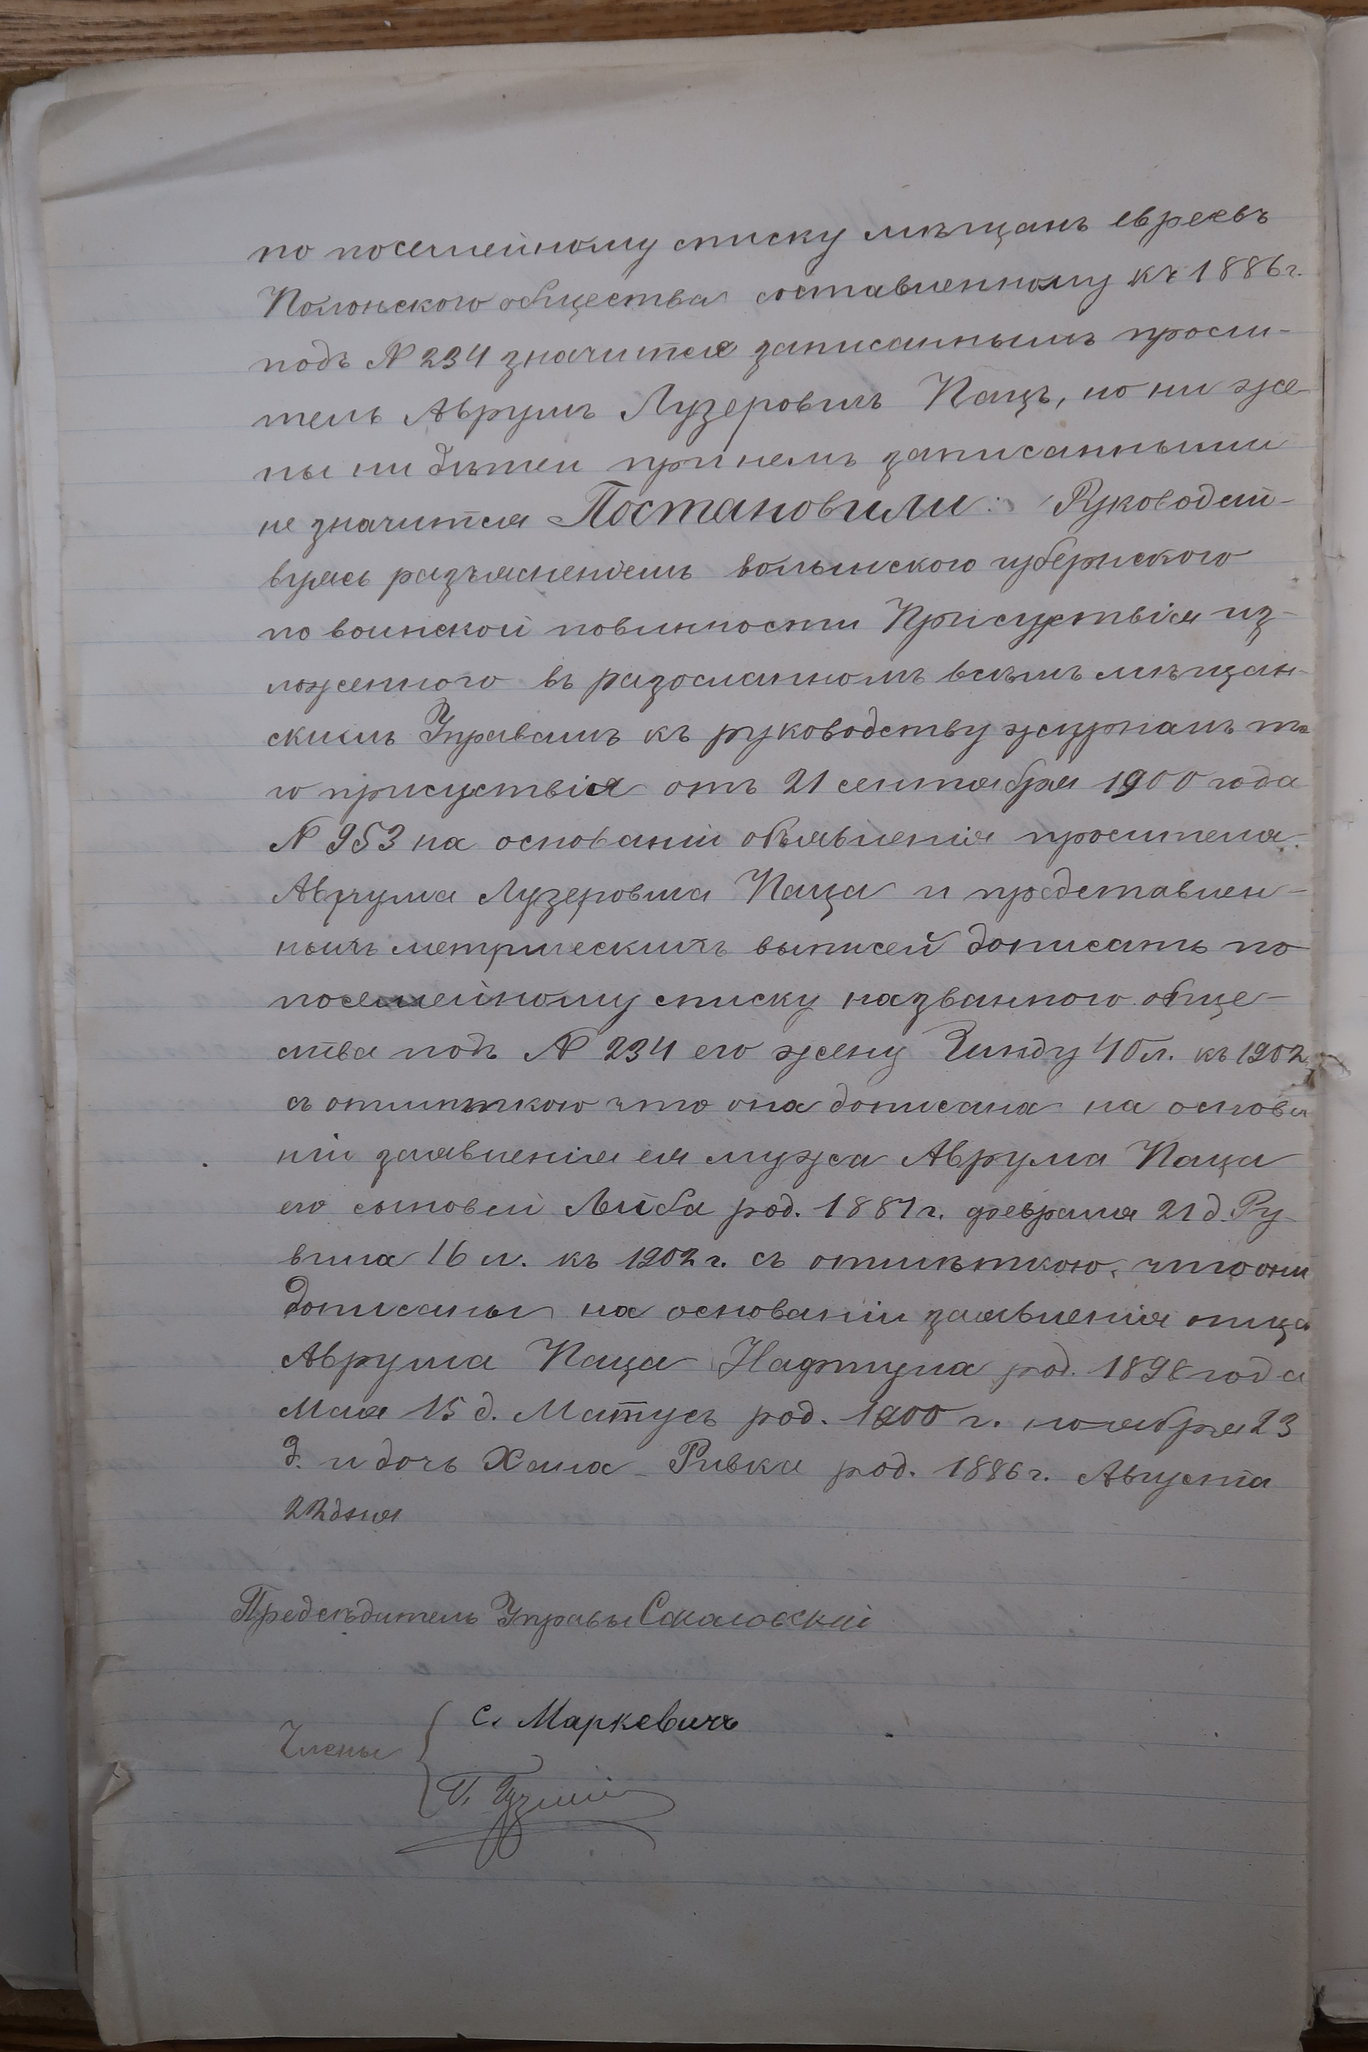 по посемейному списку мѣщанъ евреевъ
Полонскаго общества составленному къ 1886 г.
подъ № 234 значится записаннымъ проси-
тель Аврумъ Лузеровичъ Кацъ, но ни же-
ны ни дѣтей при немъ записанными
не значится Постановили: Руководст-
вуясь разъясненіемъ волынского губернского
по воинской повинности Присуствія из-
ложенного въ разосланномъ всѣмъ мѣщан-
скимъ Управамъ къ руководству журналѣ то
го присуствія отъ 21 сентября 1900 года
№ 953 на основаніи объявленія просителя
Аврума Лузеровича Каца и представлен-
ныхъ метрическихъ выписей дописать по
посемейному списку названного обще-
ства подъ № 234 его жену Зинду 40 л. къ 1902
съ отмѣткою что она дописана на основа
ніи заявленія ея мужа Аврума Каца
его сыновей Лейба род. 1881 г. февраля 21 д. Ру-
вина 16 л. къ 1902 г. съ отмѣткою, что они
дописаны на основаніи заявленія отца
Аврума Каца Нафтула род. 1898 года
Мая 15 д. Матусъ род. 1900 г. ноября 23
д. и дочь Хана-Ривка род. 1886 г. Августа
22 дня
Предсѣдитель Управы
Члены
С. Маркевичъ